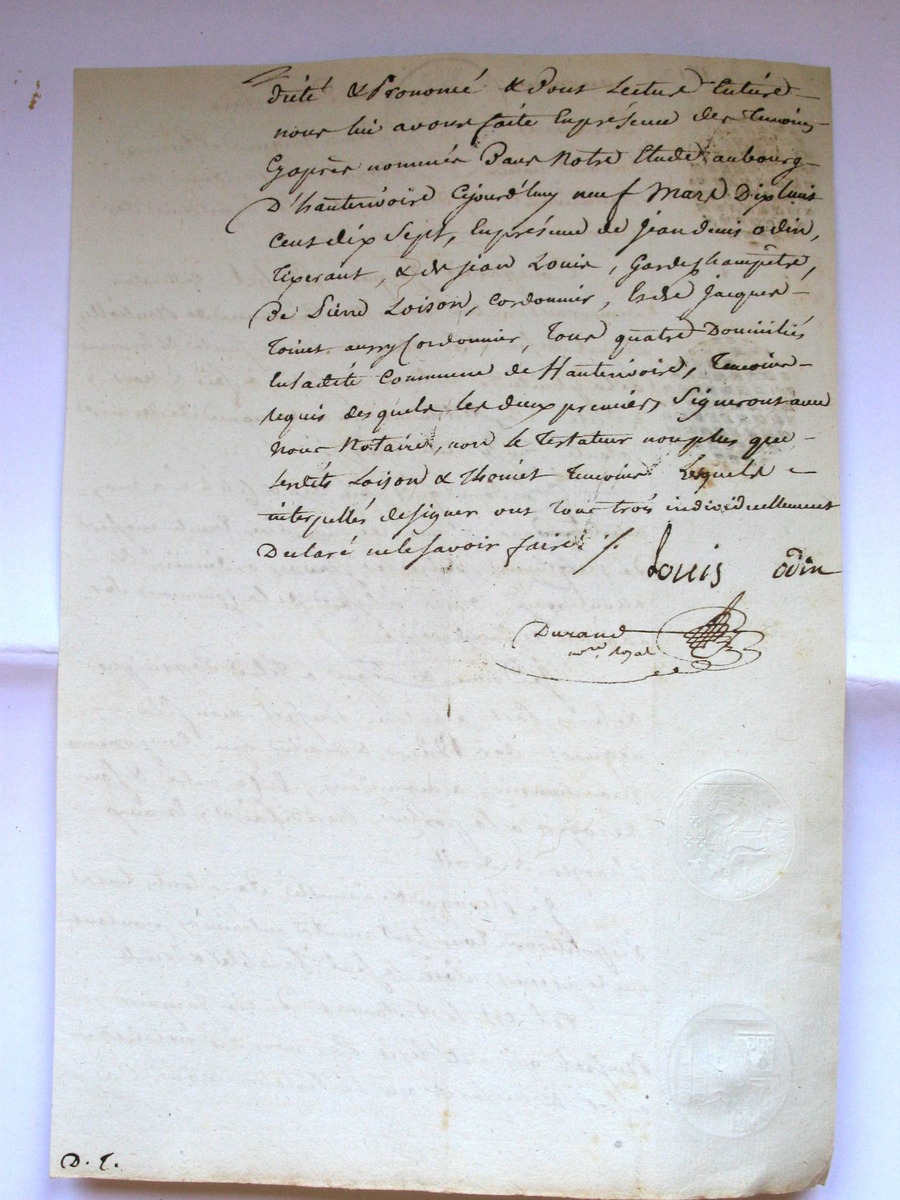 dicté & Prononcé & Dont Lecture Entiere
nous lui avons faite En présence des temoins
Cy après nommés Dans Notre Etude au bourg
D'hauterivoire Cejourd'huy neuf Mars Dix huit
Cent dix Sept, En présence de jean denis odin,
Tixerant, & de jean Louis, Garde champêtre,
De Pierre Loison, Cordonnier, Et de Jacques
Toinet aussy Cordonnier, Tous quatre Domiciliés
En la dite Commune de Hauterivoire, Temoins
requis desquels les deux premiers Signeront avec
nous Notaire, non le Testateur non plus que
Lesdits Loison & Thoinet Temoins Lesquels
interpellés de signer ont Tous trois individuellement
Declaré ne le savoir faire ./.
Louis odin
Durand
nre. royal
D. T.